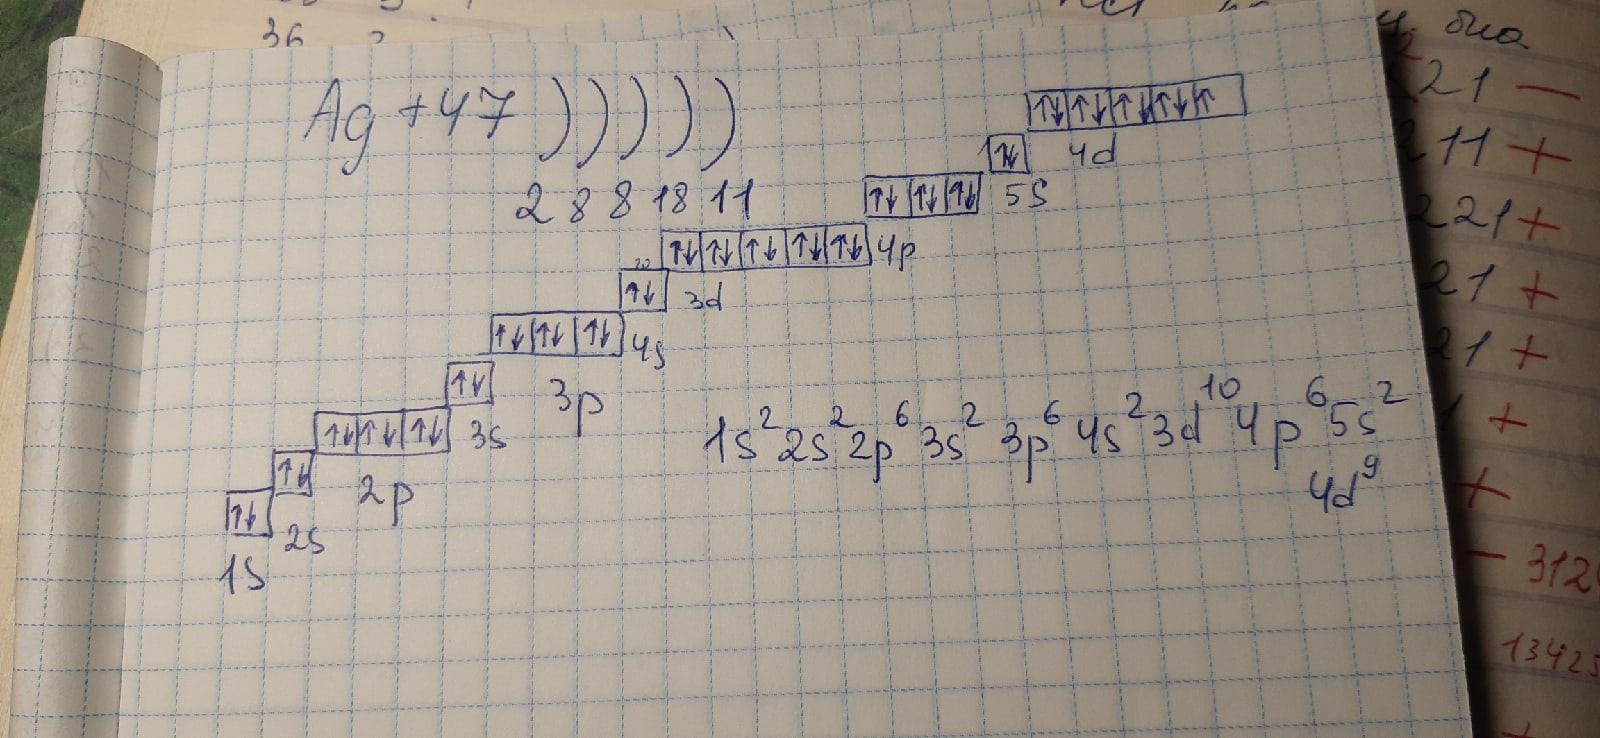 36
Ag +47 ) ) ) ) )
2 8 8 18 11
4d
5s
4p
3d
4s
3p
3s
2p
2s
1s
1s² 2s² 2p⁶ 3s² 3p⁶ 4s² 3d¹⁰ 4p⁶ 5s²
4d⁹
21 —
211 +
221 +
21 +
21 +
+
+
— 312
13425
+